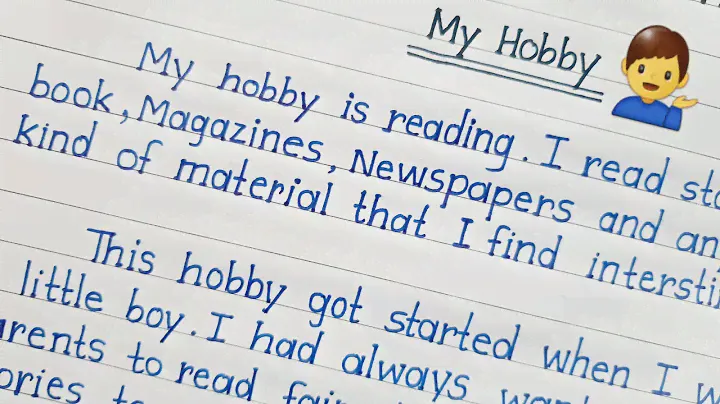 My Hobby
My hobby is reading. I read
book, Magazines, Newspapers and
kind of material that I find
This hobby got started when I
little boy. I had always
to read